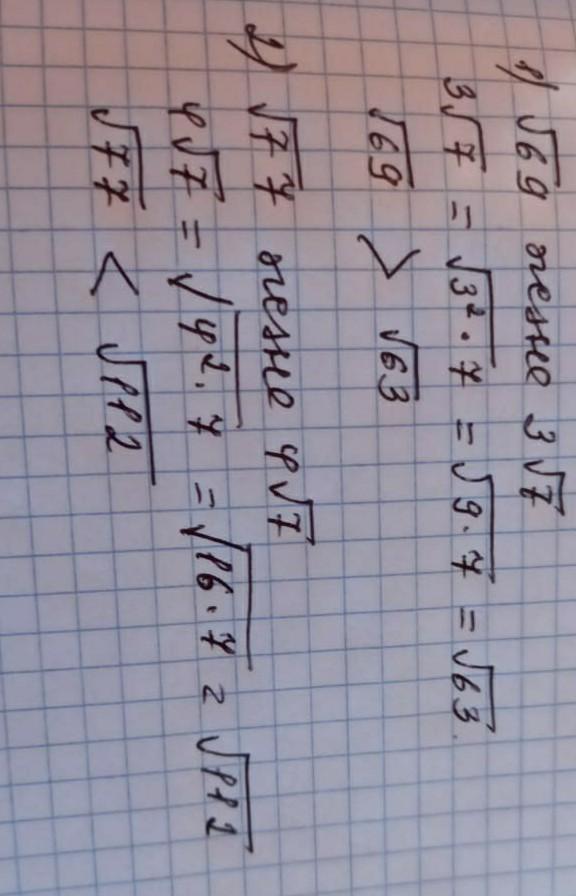 1) √69 және 3√7
3√7 = √3²·7 = √9·7 = √63
√69 > √63
2) √77 және 4√7
4√7 = √4²·7 = √16·7 = √112
√77 < √112